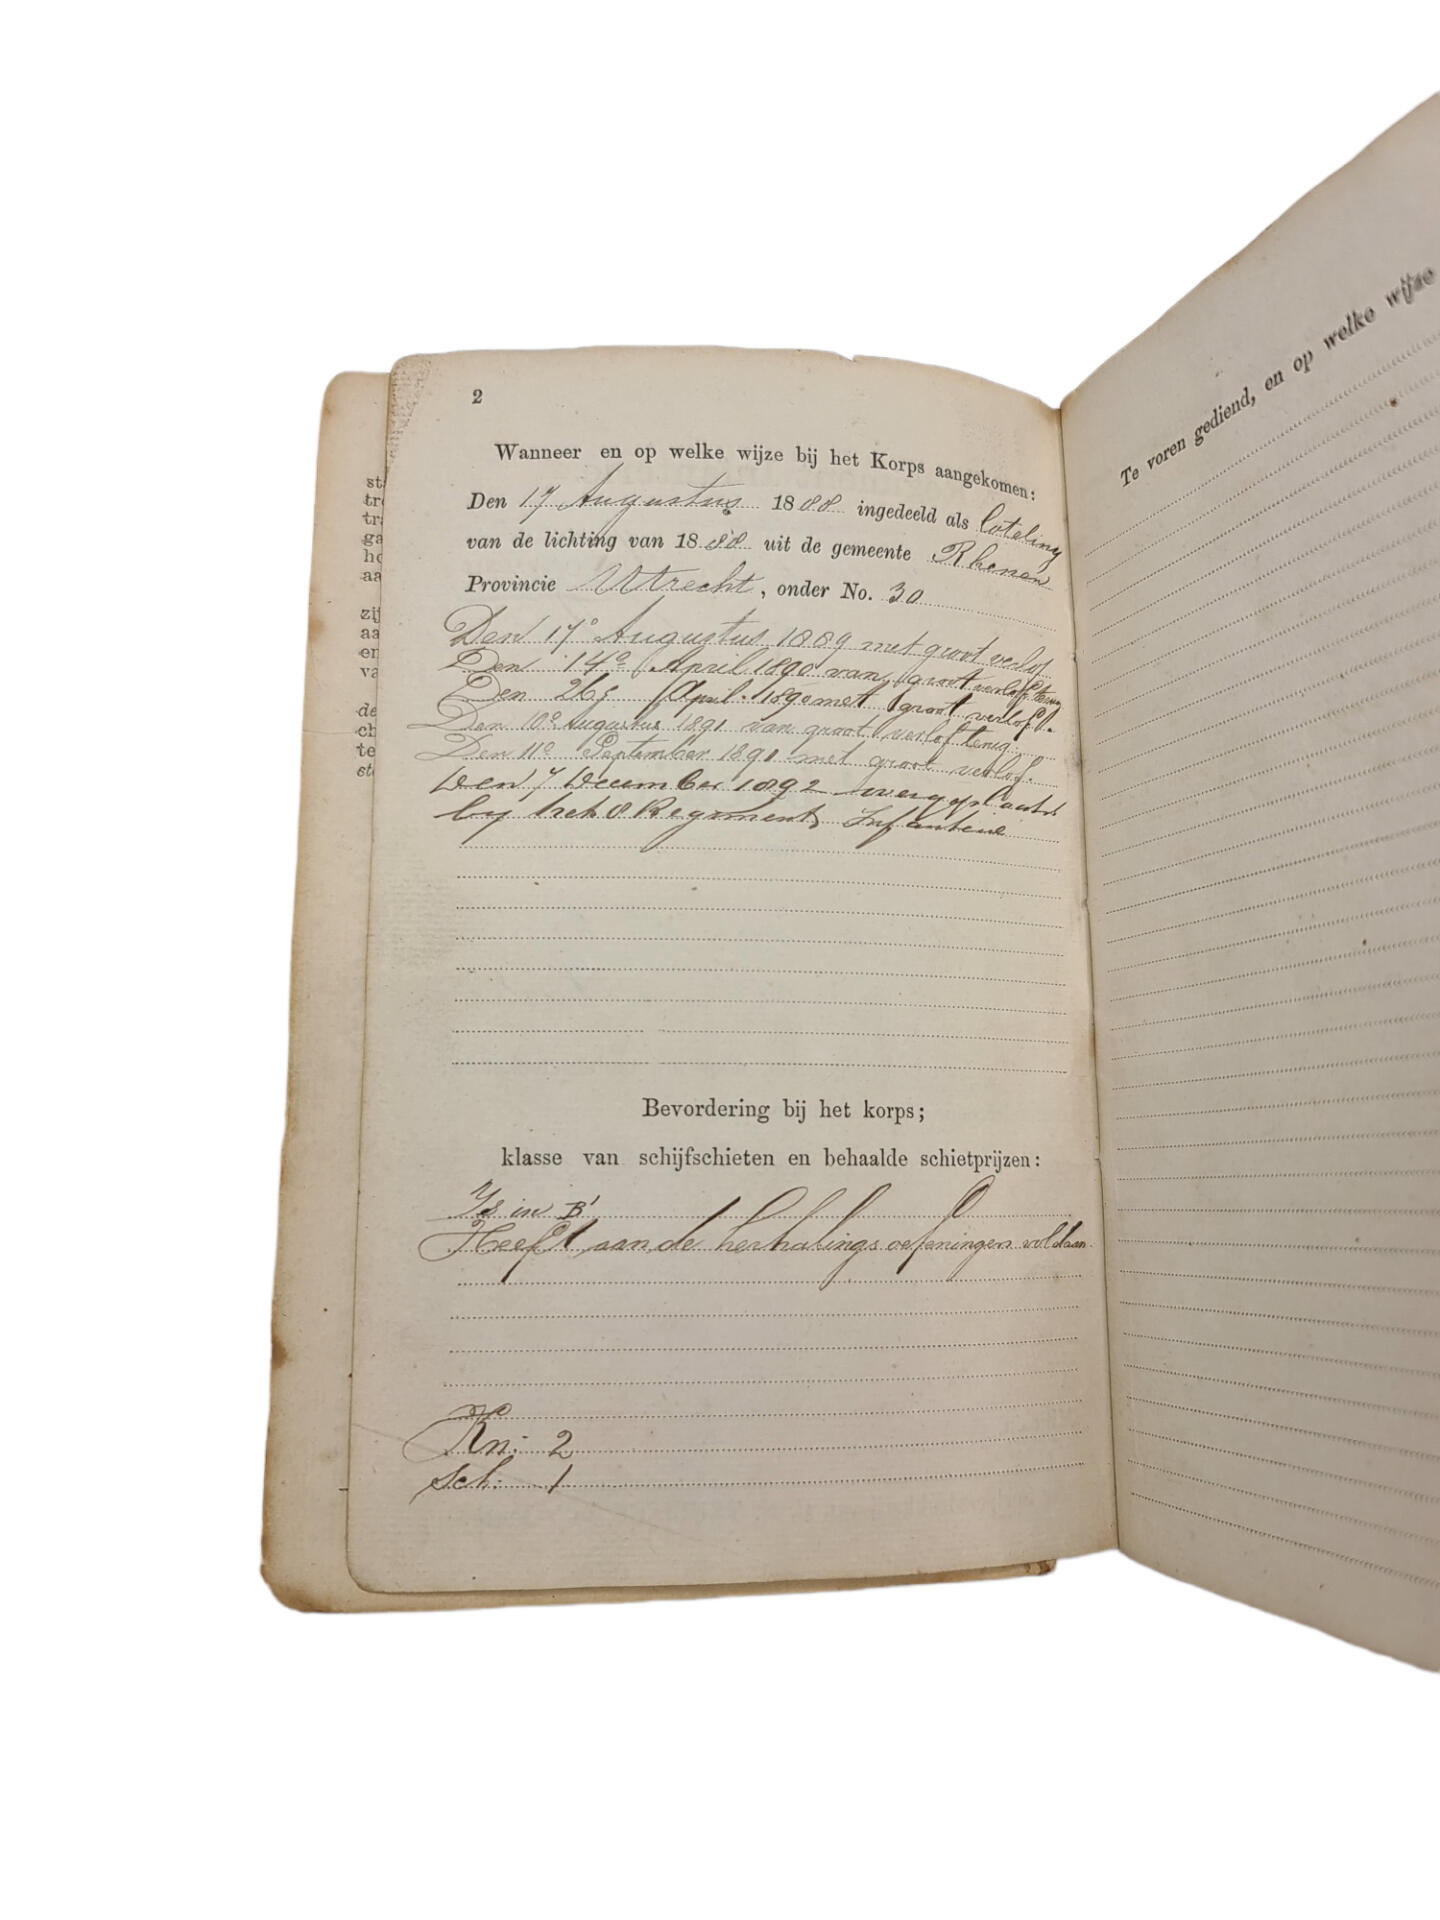 2
Wanneer en op welke wijze bij het Korps aangekomen:
Den 17 Augustus 1888 ingedeeld als loteling
van de lichting van 1888 uit de gemeente Rhenen
Provincie Utrecht, onder No. 30
Den 17e Augustus 1889 met groot verlof
Den 14e April 1890 van groot verlof terug
Den 26e April 1890 met groot verlof.
Den 10e Augustus 1891 van groot verlof terug.
Den 11e September 1891 met groot verlof.
Den 7 December 1892 overgeplaatst
by het 8 Regiment Infanterie
Bevordering bij het korps;
klasse van schijfschieten en behaalde schietprijzen:
Is in B'
Heeft aan de herhalings oefeningen voldaan.
Kn: 2
Sch: 1
Te voren gediend, en op welke wijze
st
tr
tr
ga
ho
aa
zij
aa
en
va
de
ch
te
st